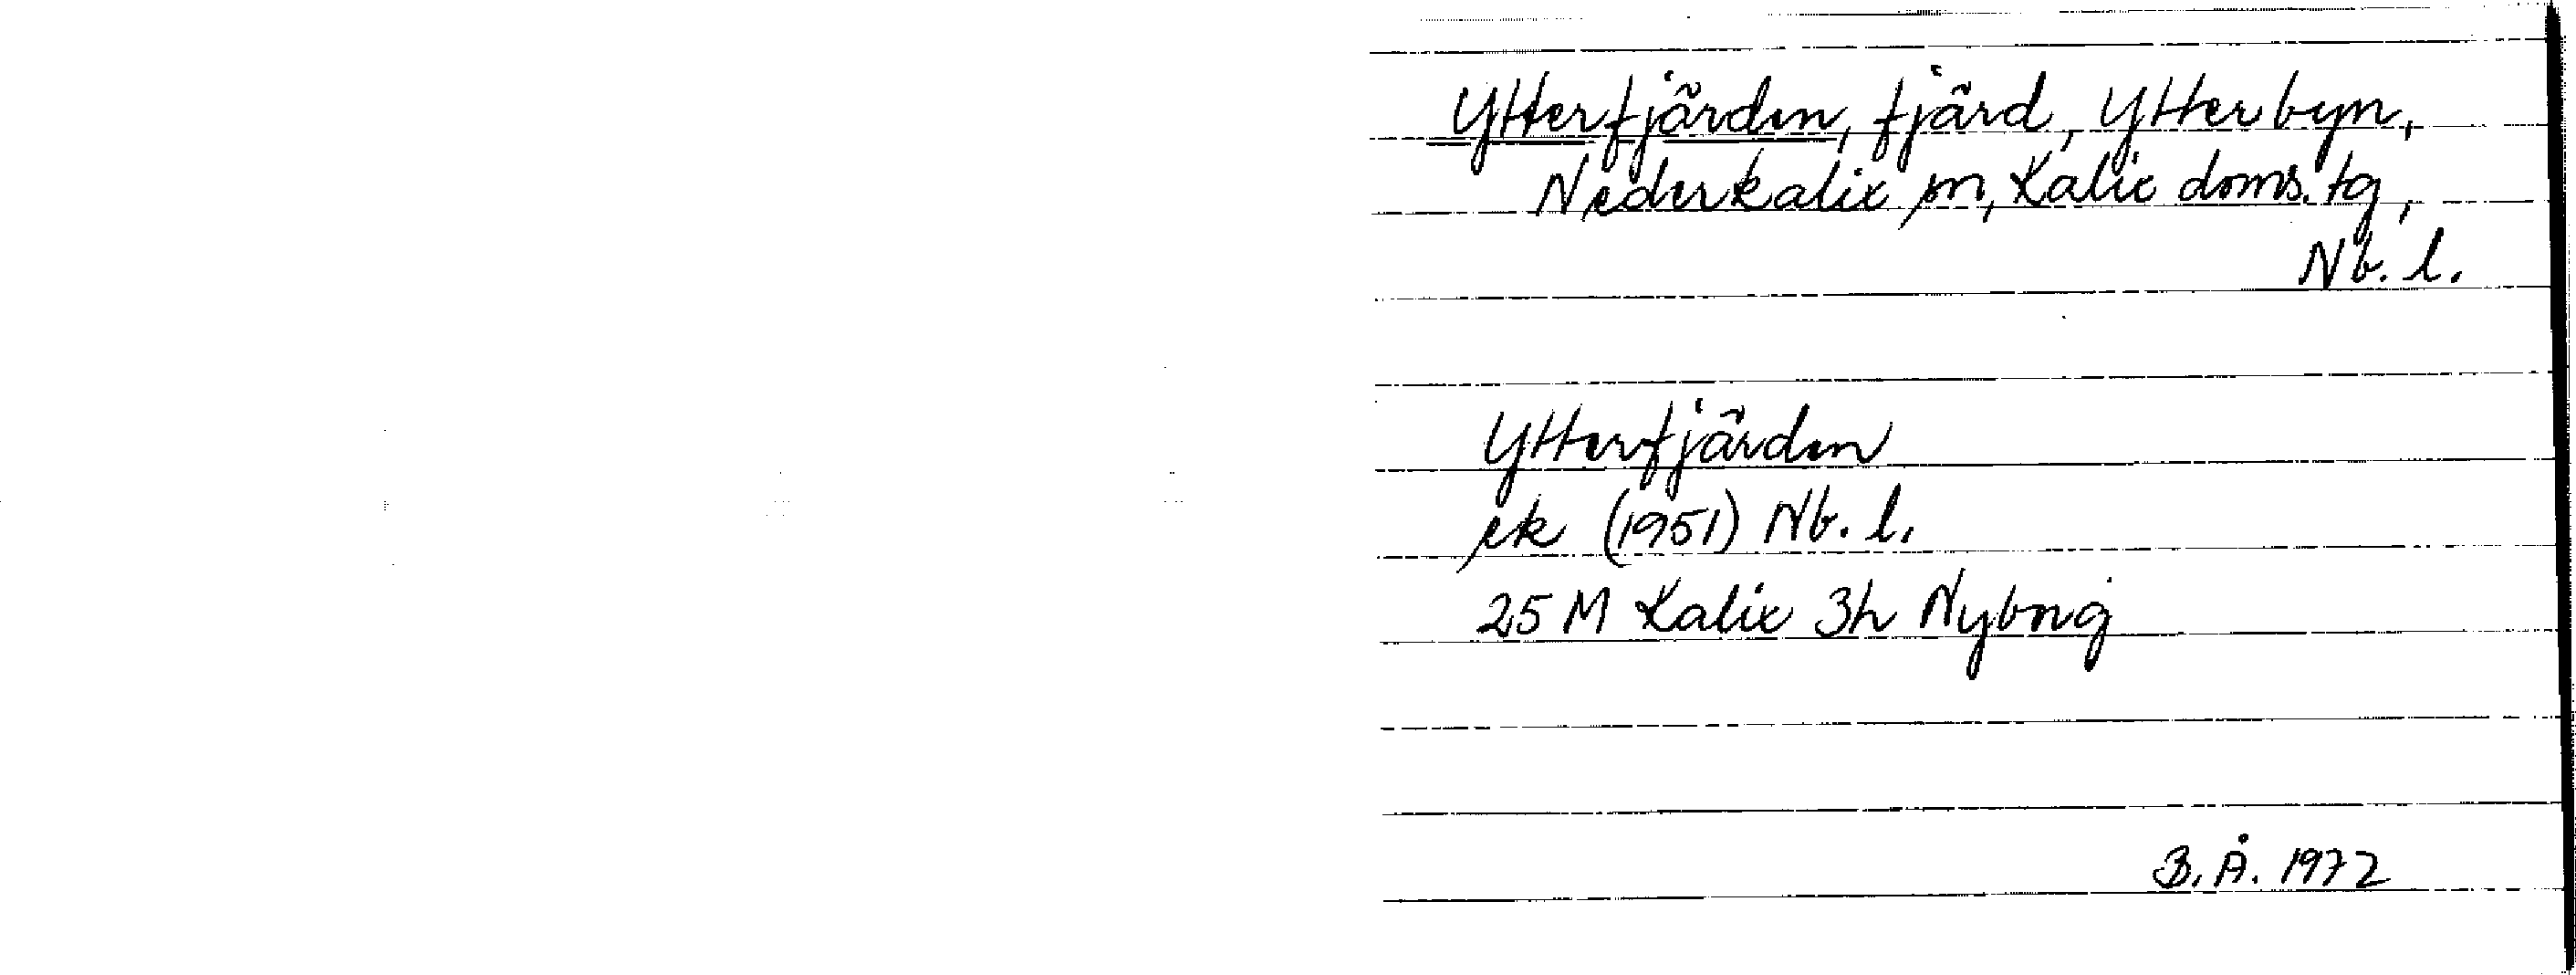 Ytterfjärden, fjärd, Ytterbyn,
Nederkalix sn, Kalix doms. tg,
Nb. l.
Ytterfjärden
ek (1951) Nb. l.
25 M Kalix 3h Nyborg
B. Å. 1972